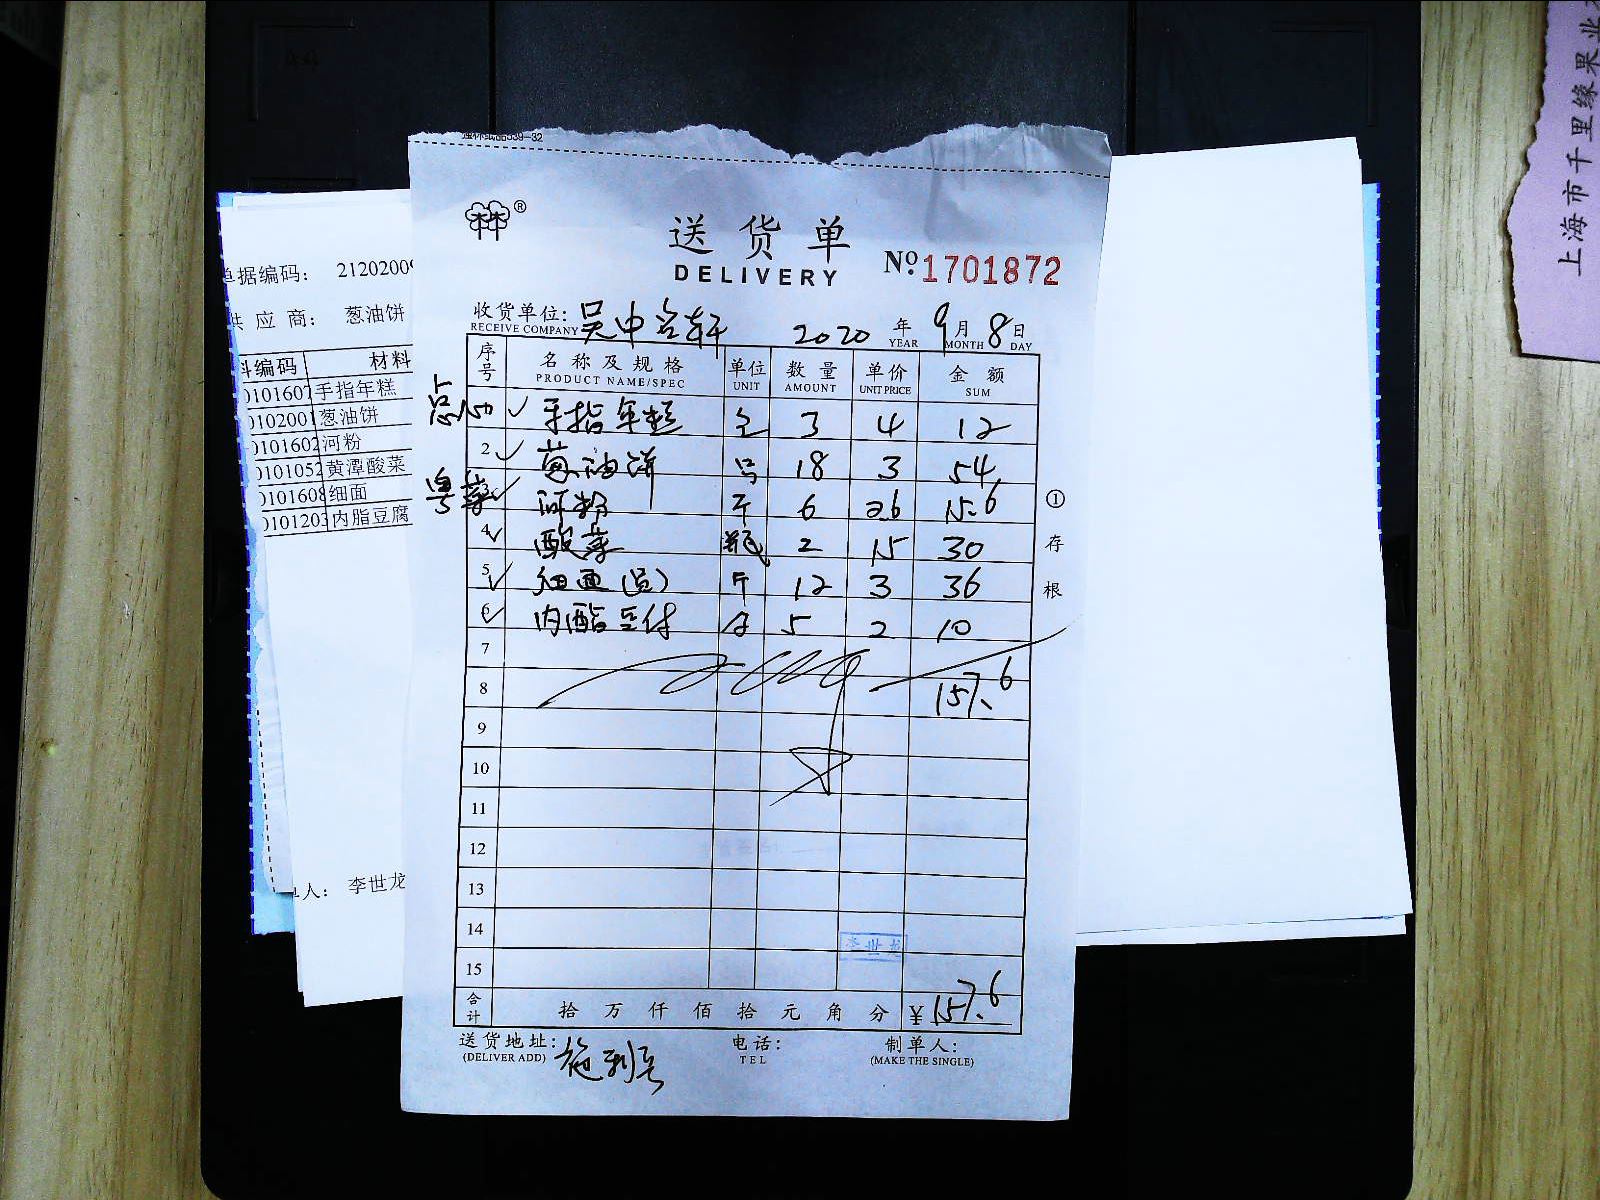 强林纸品539-32
林林®
送货单
DELIVERY
No.1701872
收货单位:吴中 轩 2020年9月8日
RECEIVE COMPANY YEAR MONTH DAY
序号 名称及规格 单位 数量 单价 金额
PRODUCT NAME/SPEC UNIT AMOUNT UNIT PRICE SUM
点心 ✓ 手指年糕 3 4 12
2 ✓ 葱油饼 18 3 54
粤菜 3 ✓ 河粉 斤 6 2.6 15.6
4 ✓ 酸菜 瓶 2 15 30
5 ✓ 细面 斤 12 3 36
6 ✓ 内酯豆付 5 2 10
7
8 157.6
9
10
11
12
13
14 李世龙
15
合计 拾万仟佰拾元角分 ¥157.6
送货地址: 电话: 制单人:
(DELIVER ADD) TEL (MAKE THE SINGLE)
①存根
单据编码: 21202009
供应商: 葱油饼
料编码 材料
0101607 手指年糕
0102001 葱油饼
0101602 河粉
0101052 黄潭酸菜
0101608 细面
0101203 内脂豆腐
人: 李世龙
上海市千里缘果业